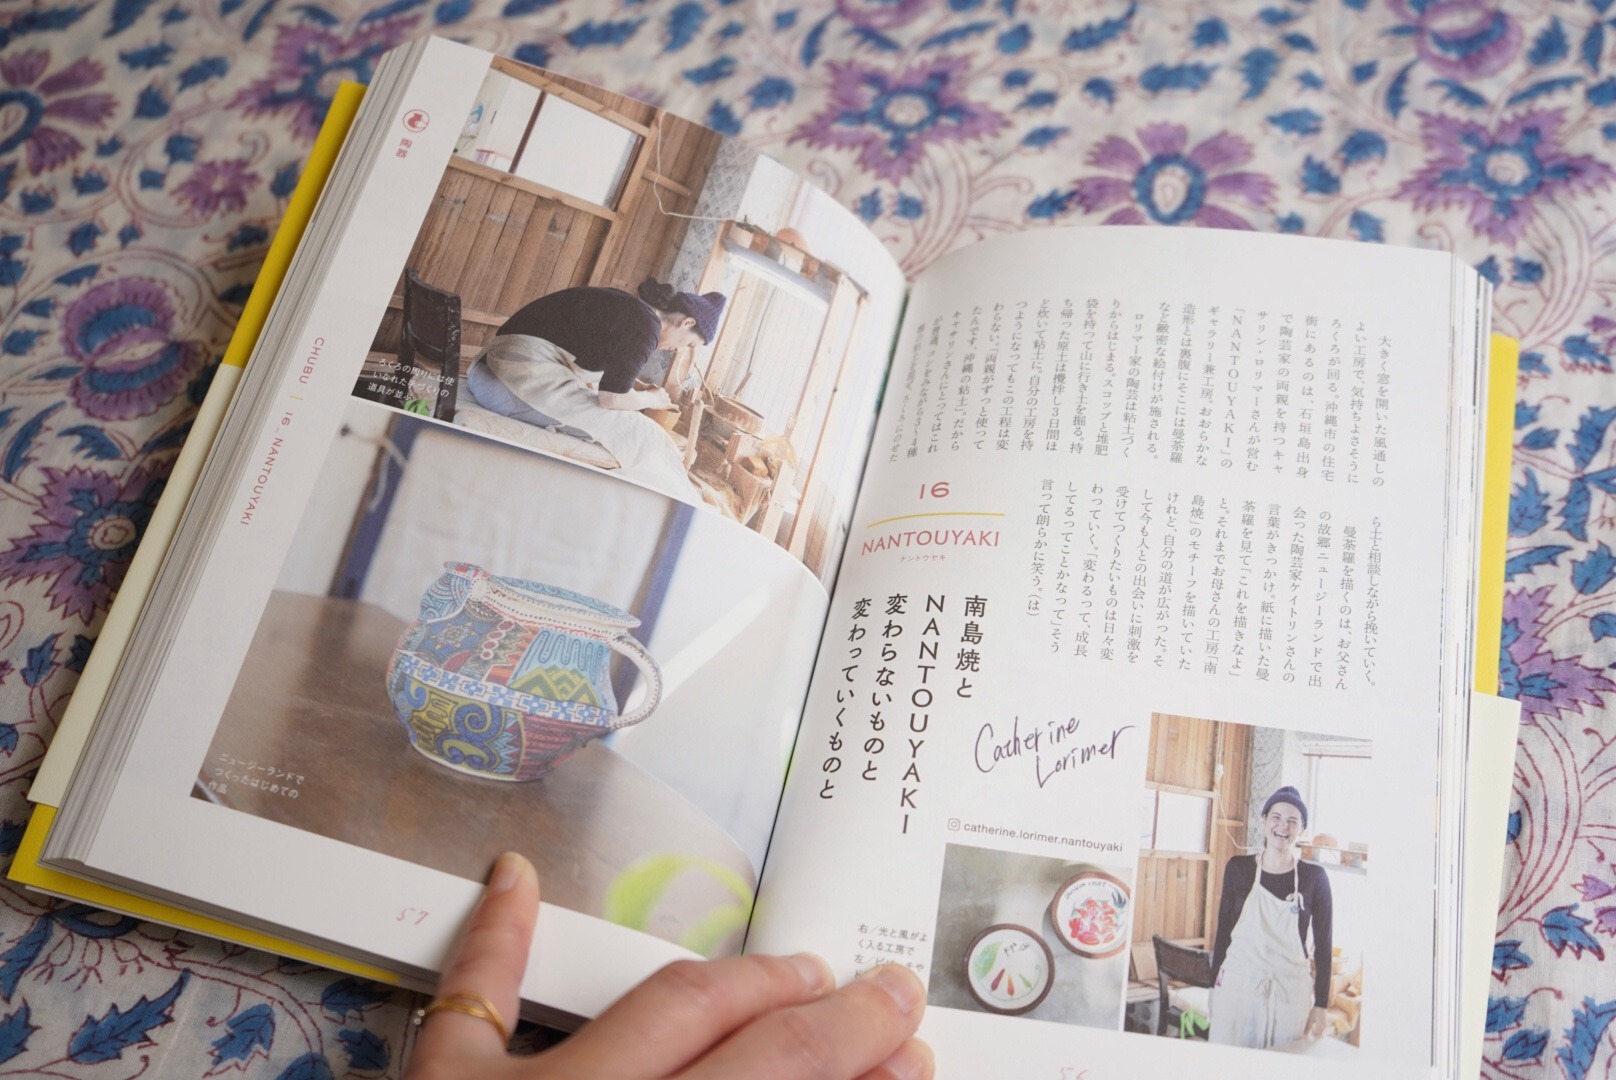 大きく窓を開いた風通しの
よい工房で、気持ちよさそうに
ろくろが回る。沖縄市の住宅
街にあるのは、石垣島出身
で陶芸家の両親を持つキャ
サリン・ロリマーさんが営む
「NANTOUYAKI」の
ギャラリー兼工房。おおらかな
造形とは裏腹にそこには曼荼羅
など緻密な絵付けが施される。
ロリマー家の陶芸は粘土づく
りからはじまる。スコップと堆肥
袋を持って山に行き土を掘る。持
ち帰った原土は攪拌し3日間ほ
ど炊いて粘土に。自分の工房を持
つようになってもこの工程は変
わらない。「両親がずっと使って
たんです、沖縄の粘土」。だから
キャサリンさんにとってはこれ
が普通。
ら土と相談しながら挽いていく。
曼荼羅を描くのは、お父さん
の故郷ニュージーランドで出
会った陶芸家ケイトリンさんの
言葉がきっかけ。紙に描いた曼
荼羅を見て「これを描きなよ」
と。それまでお母さんの工房「南
島焼」のモチーフを描いていた
けれど、自分の道が広がった。そ
して今も人との出会いに刺激を
受けてつくりたいものは日々変
わっていく。「変わるって、成長
してるってことかなって」そう
言って朗らかに笑う。(は)
16
NANTOUYAKI
ナントウヤキ
南島焼と
NANTOUYAKI
変わらないものと
変わっていくものと
Catherine
Lorimer
catherine.lorimer.nantouyaki
右/光と風がよ
く入る工房で
56
陶器
CHUBU | 16 _ NANTOUYAKI
ろくろの周りには使
いなれた手づくりの
道具が並ぶ
ニュージーランドで
つくったはじめての
作品
57